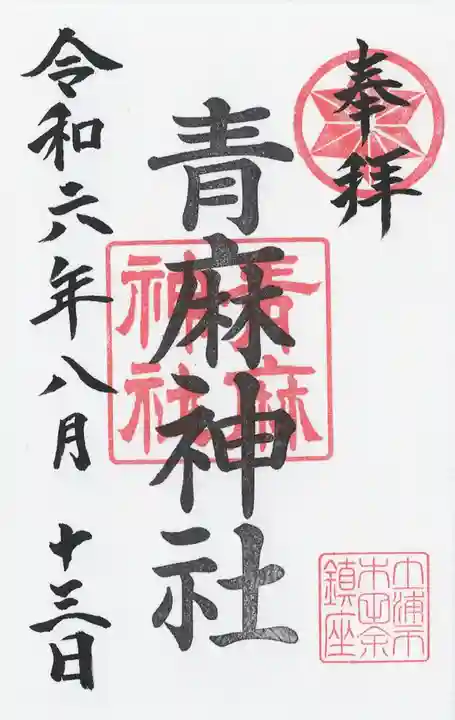 奉拝
青麻神社
青麻
神社
令和六年八月十三日
土浦市
木田余
鎮座